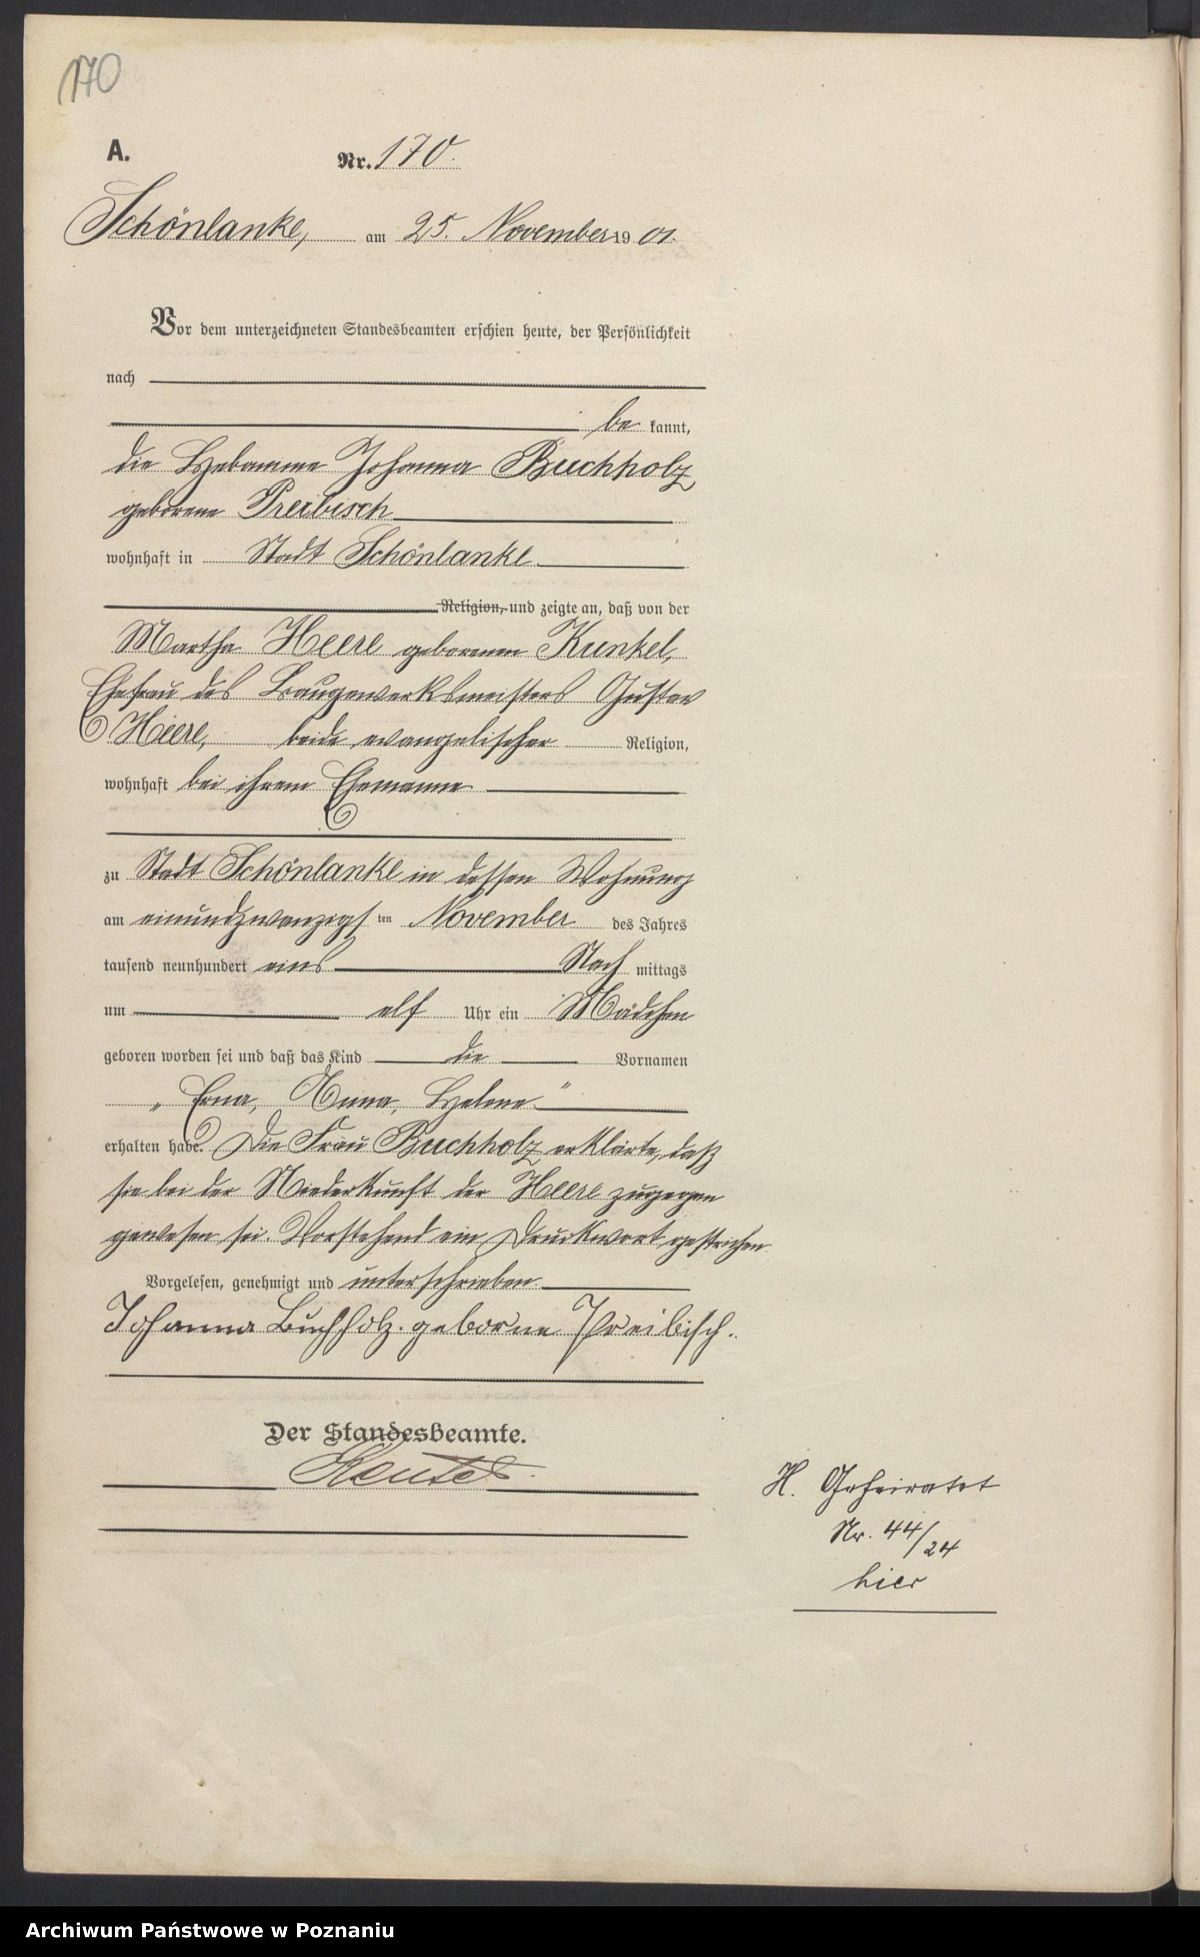 170
A. Nr. 170.
Schönlanke, am 25. November 1901.
Vor dem unterzeichneten Standesbeamten erschien heute, der Persönlichkeit
nach
bekannt,
die Hebamme Johanna Buchholz
geborene Preibisch
wohnhaft in Stadt Schönlanke
Religion, und zeigte an, daß von der
Martha Heere geborenen Kunkel,
Ehefrau des Baugewerksmeisters Gustav
Heere, beide evangelischer Religion,
wohnhaft bei ihrem Ehemanne
zu Stadt Schönlanke in dessen Wohnung
am einundzwanzigsten November des Jahres
tausend neunhundert eins Nachmittags
um elf Uhr ein Mädchen
geboren worden sei und daß das Kind die Vornamen
„Erna, Anna, Helene“
erhalten habe. Die Frau Buchholz erklärte, daß
sie bei der Niederkunft der Heere zugegen
gewesen sei. Vorstehend ein Druckwort gestrichen.
Vorgelesen, genehmigt und unterschrieben.
Johanna Buchholz. geborne Preibisch.
Der Standesbeamte.
H. Geheiratet
Nr. 44/24
hier
Archiwum Państwowe w Poznaniu